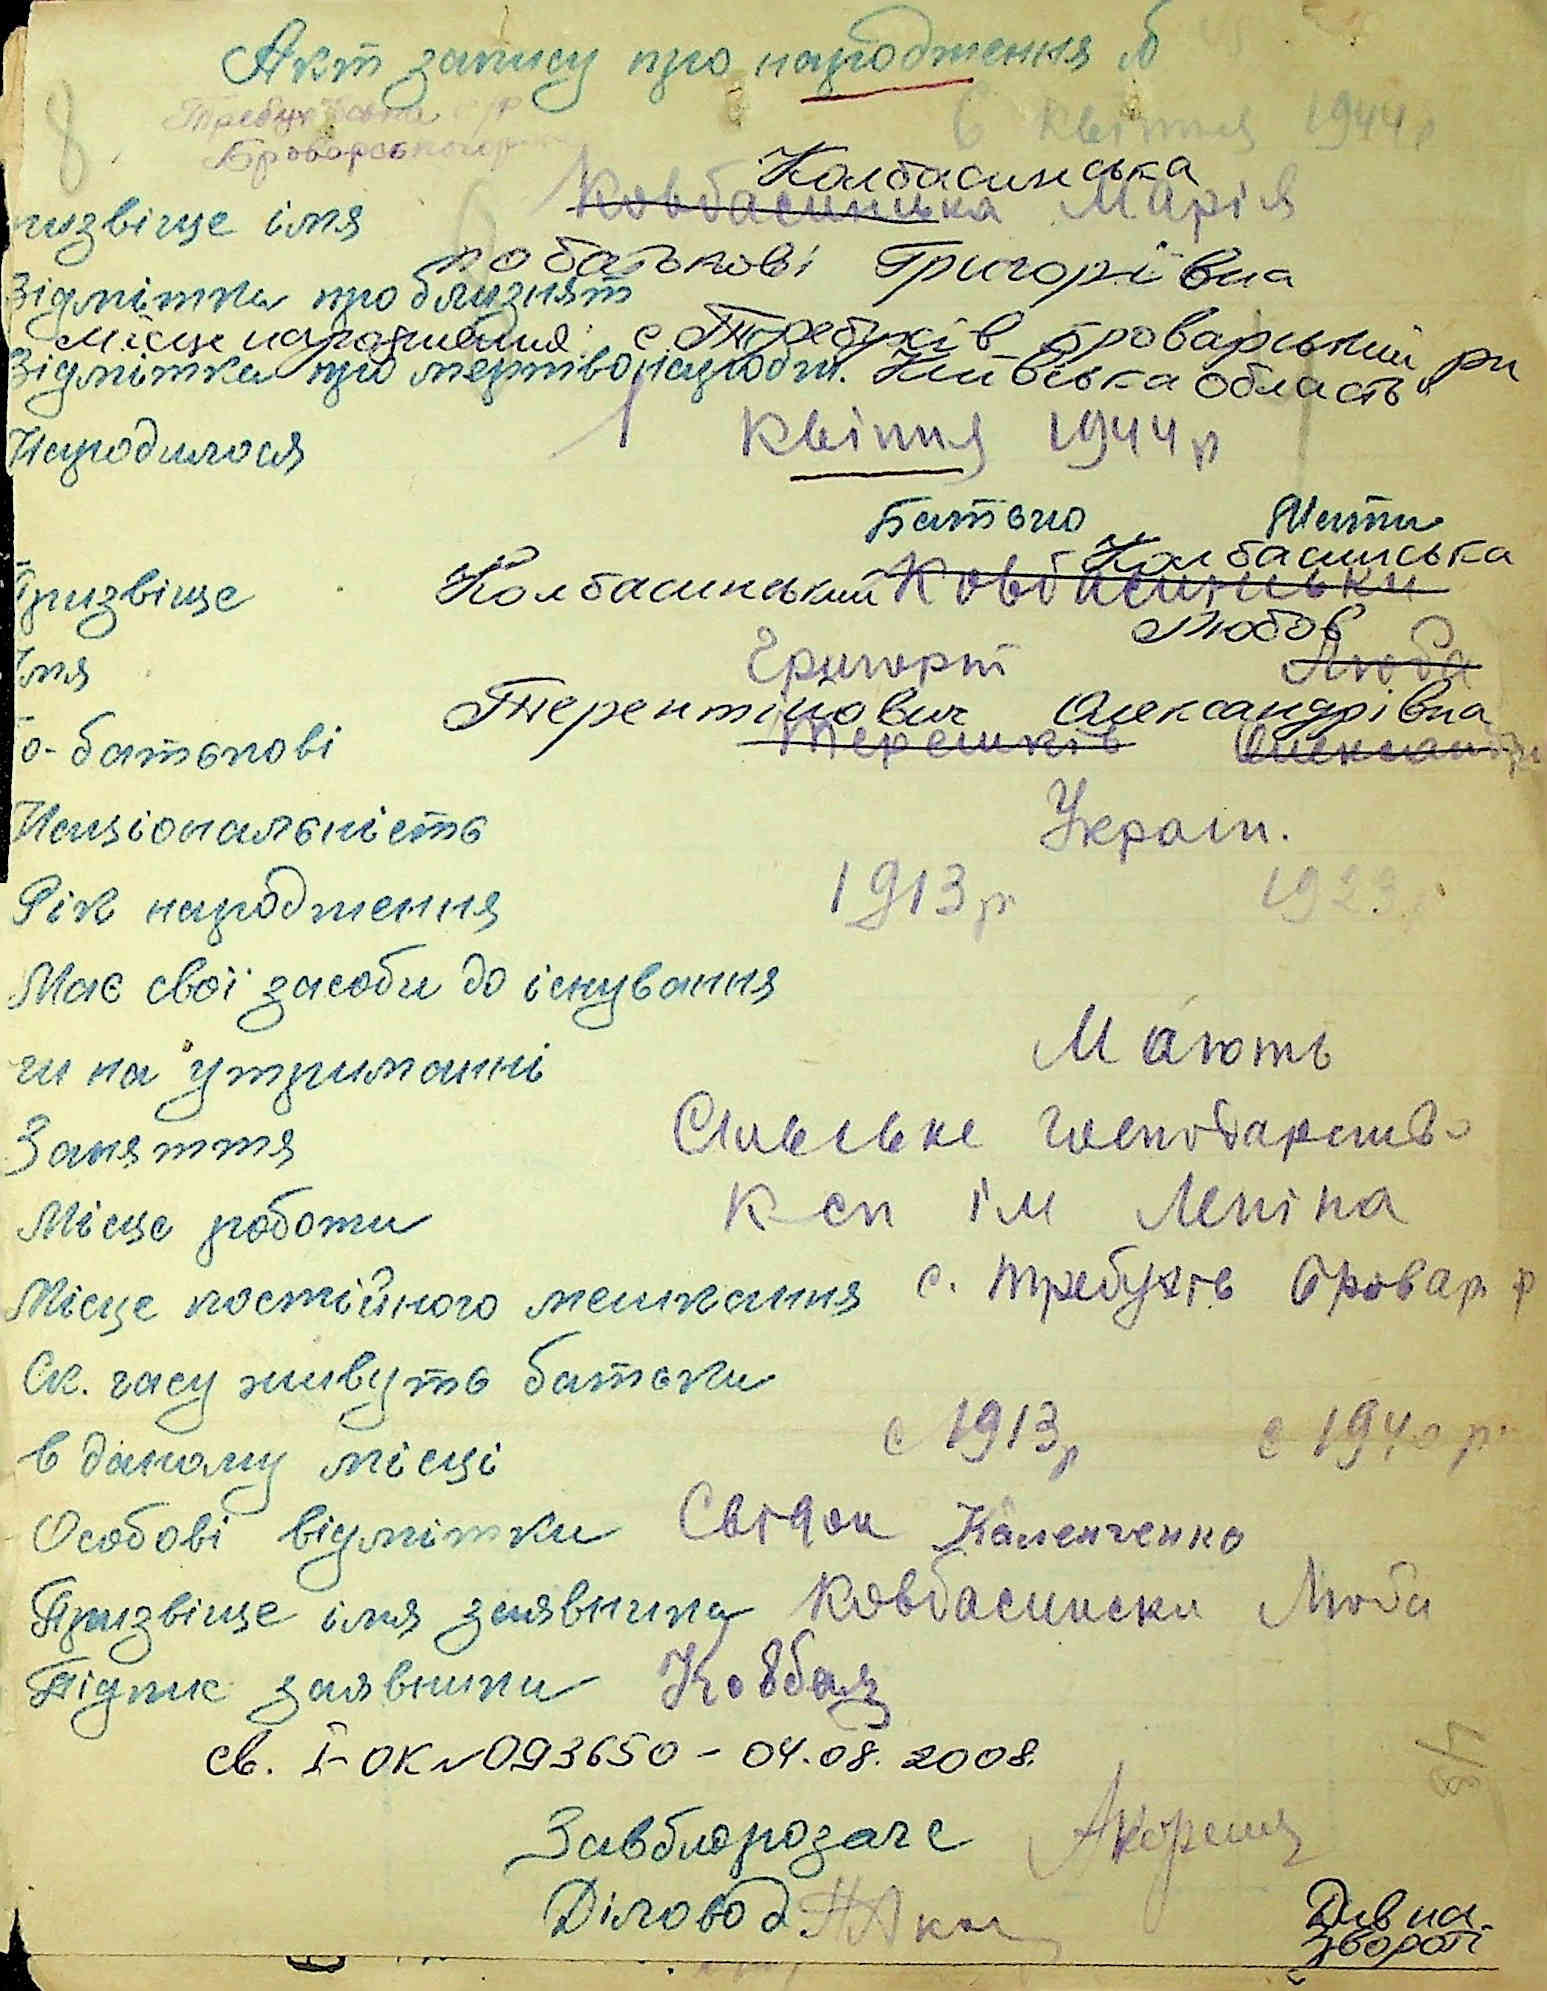 Акт запису про народження №
8
Требухівська с/р
6 квітня 1944 р
Броварського р
Колбасинська
Призвіще імя Ковбасинська Марія
по батькові Григорівна
Відмітка про близнят
місце народження: с Требухів Броварський рн
Відмітка про мертвонародж. Київська область
Народилося 1 квітня 1944 р
Батько Мати
Колбасинська
Призвіще Колбасинський Ковбасинськи
Любов
Імя Григорій Люба
Терентійович Олександрівна
По-батькові Терешків Олександр
Національність Україн.
Рік народження 1913 р 1923 р
Має свої засоби до існування
чи на утриманні Мають
Заняття Сільське господарство
Місце роботи К сп ім Леніна
Місце постійного мешкання с. Требухів Бровар. р
Ск. часу живуть батьки
в даному місці с 1913 р с 1940 р.
Особові відмітки Свідок Каленченко
Призвіще імя заявника Ковбасински Люба
Підпис заявника Ковбас
св. І-ОК № 093650 - 04.08.2008.
Завбюрозагс
Діловод
Див на
звороті